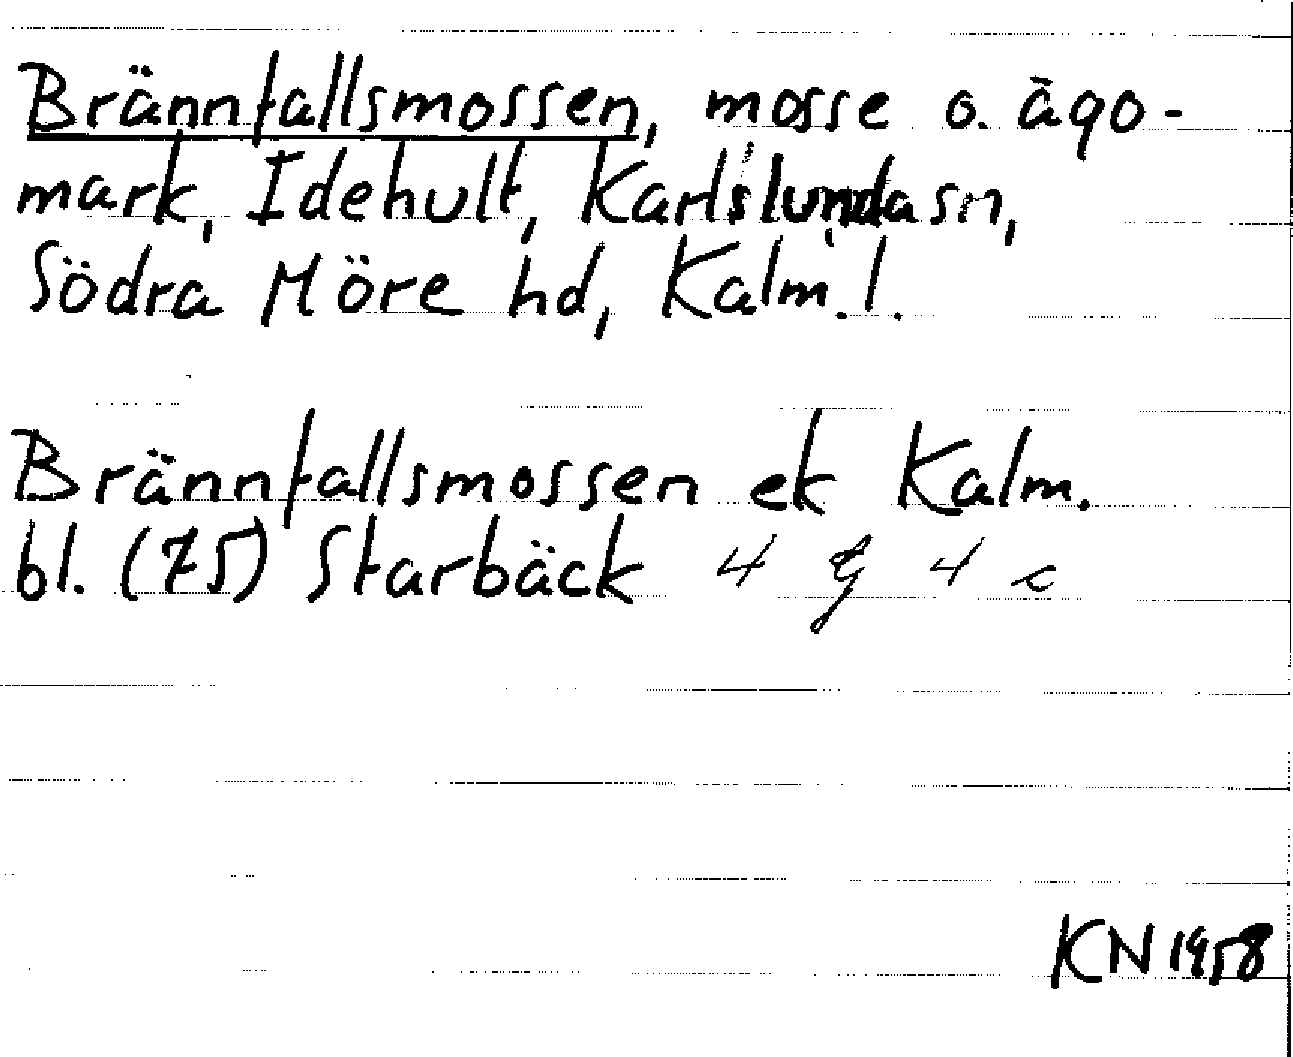 Brännfallsmossen, mosse o. ägo-
mark, Idehult, Karlslunda sn,
Södra Möre hd, Kalm. l.
Brännfallsmossen ek Kalm.
bl. (75) Starbäck 4 g 4 c
KN 1958